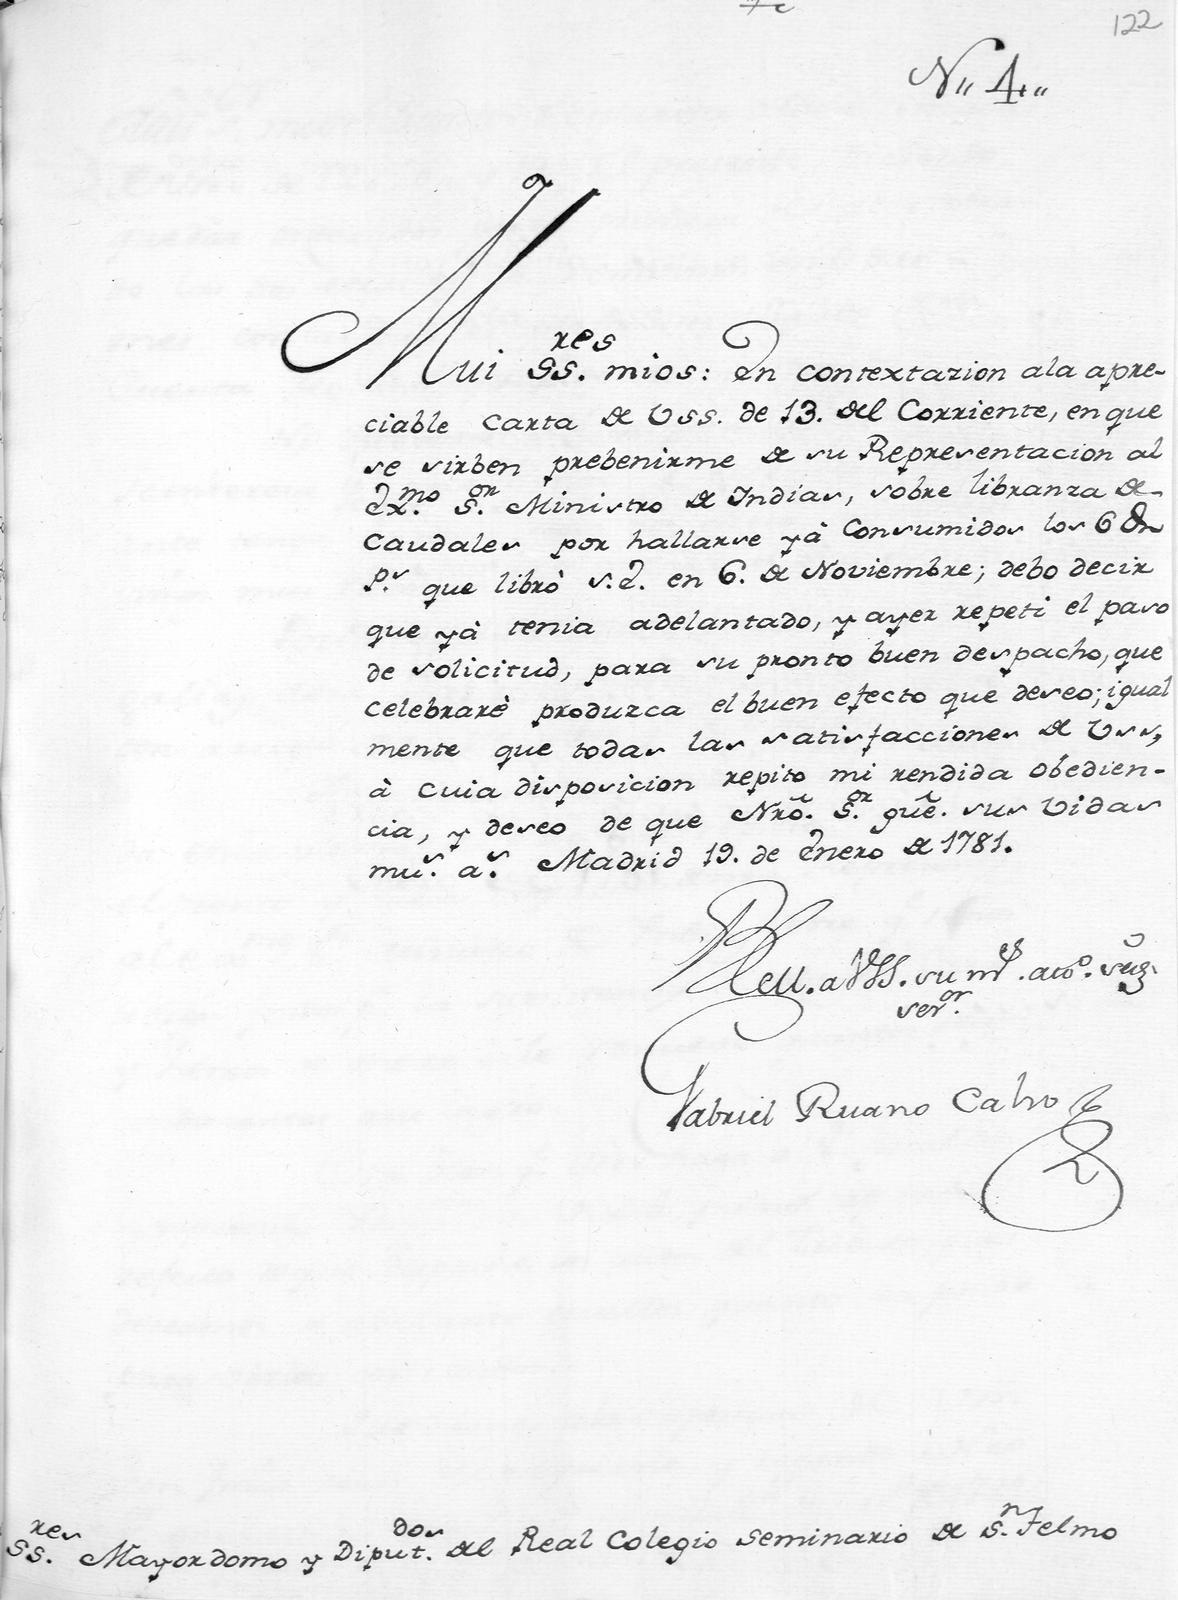 122
N,, 4,,
Mui SS.res mios: En contextazion ala apre-
ciable Carta de Vss. de 13. del Corriente, en que
se sirben prebenirme de su Representacion al
Ex.mo S.or Ministro de Indias, sobre libranza de
Caudales por hallarse yà Consumidos los 6
p.s que librò S.E. en 6. de Noviembre; debo decir
que yà tenia adelantado, y ayer repeti el paso
de solicitud, para su pronto buen despacho, que
celebrarè produzca el buen efecto que deseo; igual
mente que todas las satisfacciones de Vss,
à cuia disposicion repito mi rendida obedien-
cia, y deseo de que Nrô. S.or gue. sus Vidas
mu.s a.s Madrid 19. de Enero de 1781.
a VSS. su m.
ser.or
Gabriel Ruano Calvo
SS.res Mayordomo y Diput.dos del Real Colegio Seminario de S.n Telmo